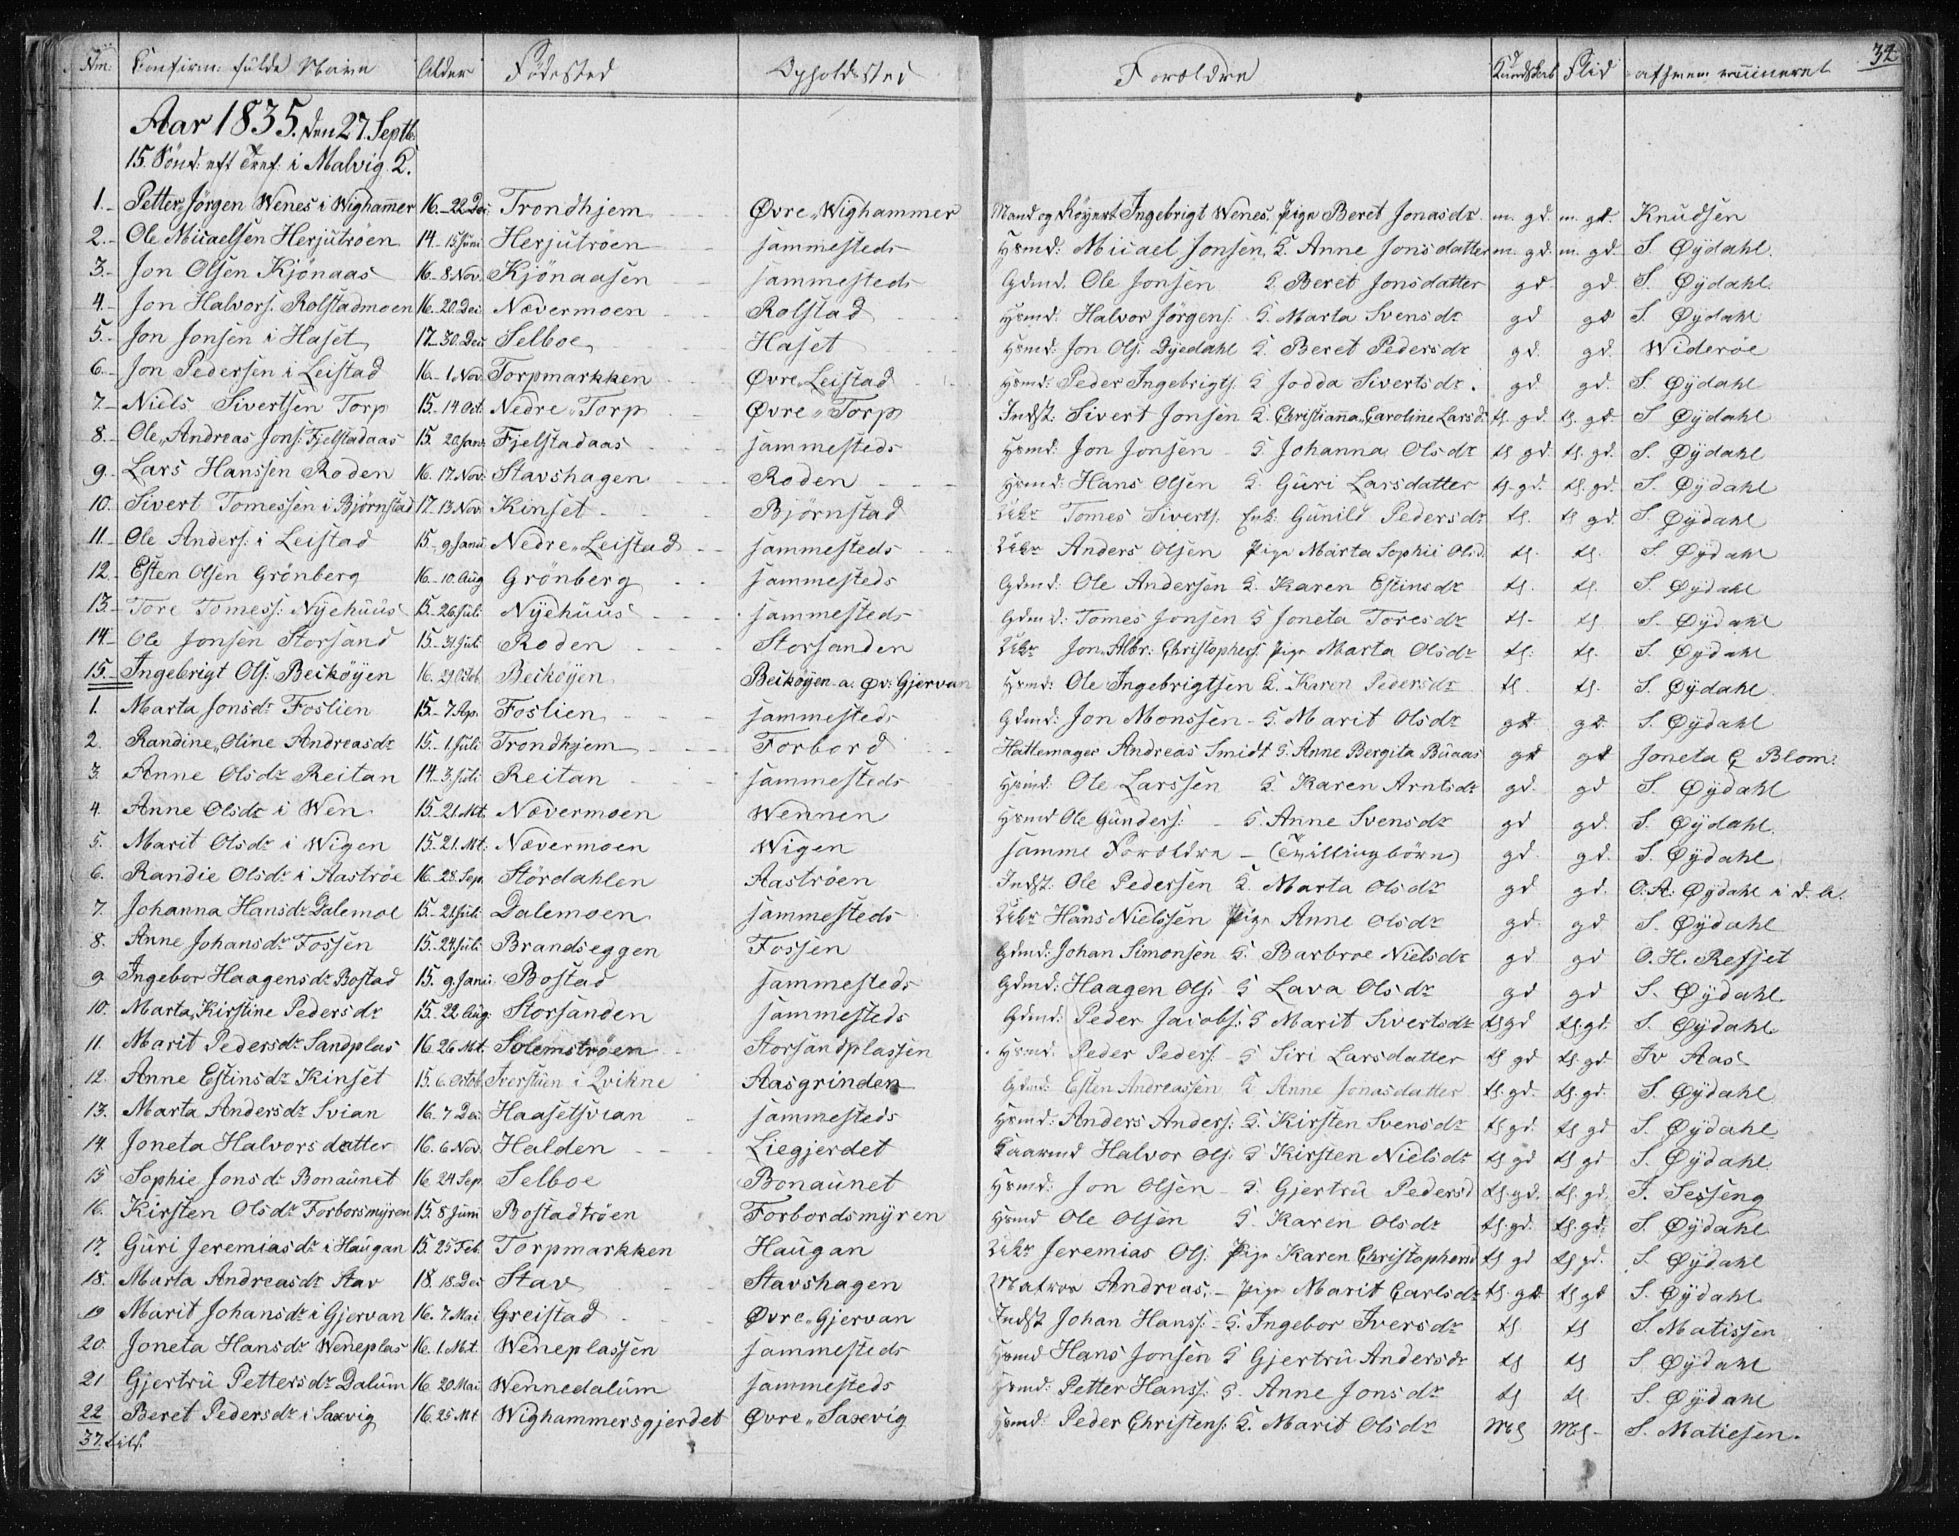 Nm. Confirm: fulde Navn Alder Fødested Opholdssted Forældre Kundskab Flid af hvem vaccineret 34
Aar 1835. den 27. Septb.
15. Sönd: eft Tref: i Malvig K.
1. Petter, Jörgen Wenes i Wighammer 16. 22 Dec: Trondhjem Øvre, Wighammer Mand og Röyert Ingebrigt Wenes. Pige Beret Jonasdr. m. gd. m. gd. Knudsen
2. Ole Micaelsen Herjutröen 14. 15 Juni Herjutröen sammesteds Hsmd: Micael Jonsen, K. Anne Jonsdatter m. gd. m. gd. S. Øydahl.
3. Jon Olsen Kjönaas 16. 8 Nov. Kjönaasen sammesteds Gdmd. Ole Jonsen K. Beret Jonsdatter gd gd. S. Øydahl.
4. Jon Halvors: Rolstadmoen 16. 20. Dec Nævermoen Rolstad Hsmd: Halvor Jörgens: K. Marta Svensdr gd gd S. Øydahl
5. Jon Jonsen i Haset 17. 30. Dec Selboe Haset Hsmd: Jon Ols: Dyedahl K. Beret Pedersdr gd. gd. Wideröe
6. Jon Pedersen i Leistad 16. 1. Nov. Torpmarkken Øvre, Leistad Hsmd: Peder Ingebrigts: K Jodda Sivertsdr. gd gd. S. Øydahl
7. Niels Sivertsen Torp 15. 14 Oct. Nedre, Torp Øvre, Torp Indst. Sivert Jonsen K. Christianna, Caroline Larsd: tl. gd. tl. gd. S. Øydahl
8. Ole, Andreas Jons: Fjelstadaas 15. 20. Janr. Fjelstadaas sammesteds Hsmd: Jon Jonsen K Johanna Olsdr tl gd. tl. gd. S. Øydahl
9. Lars Hanssen Roden 16. 17. Nov: Stavshagen Roden Hsmd: Hans Olsen K. Guri Larsdatter tl. gd. tl. gd. S. Øydahl
10. Sivert Tomessen i Björnstad 17. 13. Nov. Kinset Björnstad Tomes Siverts. Enk: Gunild Pedersdr tl. tl gd. S. Øydahl
11. Ole Anders: i Leistad 15. 9. Janu Nedre, Leistad sammesteds Anders Olsen Pige Marta Sophie Olsd. tl. tl. S. Øydahl
12. Esten Olsen Grönberg 16. 10. Aug Grönberg sammesteds Gdmd: Ole Andersen K. Karen Estinsdr tl. tl. S. Øydahl
13. Tore Tomess: Nyehuus 15. 26. Juli Nyehuus sammesteds Gdmd: Tomes Jonsen K Joneta Toresdr tl. tl S. Øydahl
14. Ole Jonsen Storsand 15. 31. Juli Roden Storsanden Jon, Albr: Christophers: Pige Marta Olsdr tl. tl. S. Øydahl
15. Ingebrigt Ols: Beiköyen 16. 29. Octob. Beiköyen Beiköyen a. Øv: Gjervan Hsmd: Ole Ingebrigtsen K. Karen Pedersdr tl. tl. S. Øydahl.
1. Marta Jonsdr Foslien 15. 7. Ap. Foslien sammesteds Gdmd: Jon Monssen K. Marit Olsdr gd gd. S. Øydahl
2. Randine, Oline Andreasdr 15. 1. Juli Trondhjem Forbord Hattemager Andreas Smidt K. Anne Bergita Buaas gd gd Joneta C Blom:
3. Anne Olsdr Reitan 14. 3. Juli Reitan sammesteds Hsmd: Ole Larssen K Karen Arntsdr gd. gd S. Øydahl
4. Anne Olsdr i Wen 15. 21. Mt. Nævermoen Wennen Hsmd Ole Gunders: K. Anne Svensdr gd gd. S. Øydahl.
5. Marit Olsdr i Wigen 15. 21. Mt: Nævermoen Wigen samme Forældre (Tvillingbörn) gd. gd. S. Øydahl
6. Randie Olsdr i Aaströe 16. 28. Sep. Stördahlen Aaströen Indst: Ole Pedersen K. Marta Olsdr gd gd. O. A: Øydahl i d. A.
7. Johanna Hansdr Dalemoe 15. 21. Juli Dalemoen sammesteds Hans Nielssen Pige Anne Olsdr gd. gd S. Øydahl
8. Anne Johansdr Fossen 15. 24. Juli Brandseggen Fossen Gdmd: Johan Simonsen K: Barbroe Nielsdr gd gd O. H. Refset
9. Ingebor Haagensdr Bostad 15. 9. Janu: Bostad sammesteds Gdmd: Haagen Ols: K Lava Olsdr gd gd S. Øydahl.
10. Marta, Kirstine Pedersdr 15. 22 Aug. Storsanden sammesteds Gdmd: Peder Jacobs: K Marit Sivertsdr tl gd tl. gd. S. Øydahl
11. Marit Pedersdr Sandplas 16. 26. Mt. Solemströen Storsandplassen Hsmd. Peder Peders: K Siri Larsdatter tl gd tl. gd. Iv Aas
12. Anne Estinsdr Kinset 15. 6. Octob. Iverstuen i Qvikne Aasgrinden Gdmd: Esten Andreassen K Anne Jonasdatter tl. gd: tl. gd: S. Øydahl
13. Marta Andersdr Svian 16. 7 Dec: Haasetsvian sammesteds Hsmd: Anders Anders: K. Kirsten Svensdr tl gd. tl gd S. Øydahl
14. Joneta Halvorsdatter 16. 6 Nov. Halden Liegjerdet Halvor Ols: K Kirsten Nielsdr tl gd tl gd S. Øydahl
15 Sophie Jonsdr Bonaunet 16. 24 Sep. Selboe Bonaunet Hsmd: Jon Olsen K. Gjertru Pedersd tl. gd. tl. gd. J. Sesseng
16. Kirsten Olsdr Forborsmyren 15. 8 Juni Bostadtröen Forbordsmyren Hsmd Ole Olsen K. Karen Olsdr tl. gd. tl. gd: S. Øydahl
17. Guri Jeremiasdr i Haugan 15. 25 Feb. Torpmarkken Haugan Jeremias Ols: Pige Karen Christophersd tl gd tl gd. S. Øydahl
18. Marta Andreasdr Stav 18. 18. Dec Stav Stavshagen Matros Andreas, Pige Marit Carlsdr tl. gd tl gd S. Øydahl
19 Marit Johansdr i Gjervan 16. 7. Mai Greistad Øvre, Gjervan Indst Johan Hanss: K. Ingebor Iversdr tl tl S. Matissen
20. Joneta Hansdr Weneplas 16. 1. Mt. Weneplassen sammesteds Hsmd Hans Jonsen K Gjertru Andersdr tl tl S. Øydahl
21 Gjertru Pettersdr Dalum 16 20 Mai Wennedalum sammesteds Hsmd: Petter Hanss: K. Anne Jonsdr tl tl. S. Øydahl
22 Beret Pedersdr i Saxvig 16. 25 Mt Wighammersgjerdet Øvre, Saxevig Hsmd: Peder Christens: K. Marit Olsdr Mtl Mtl S. Matiesen.
37. tils.